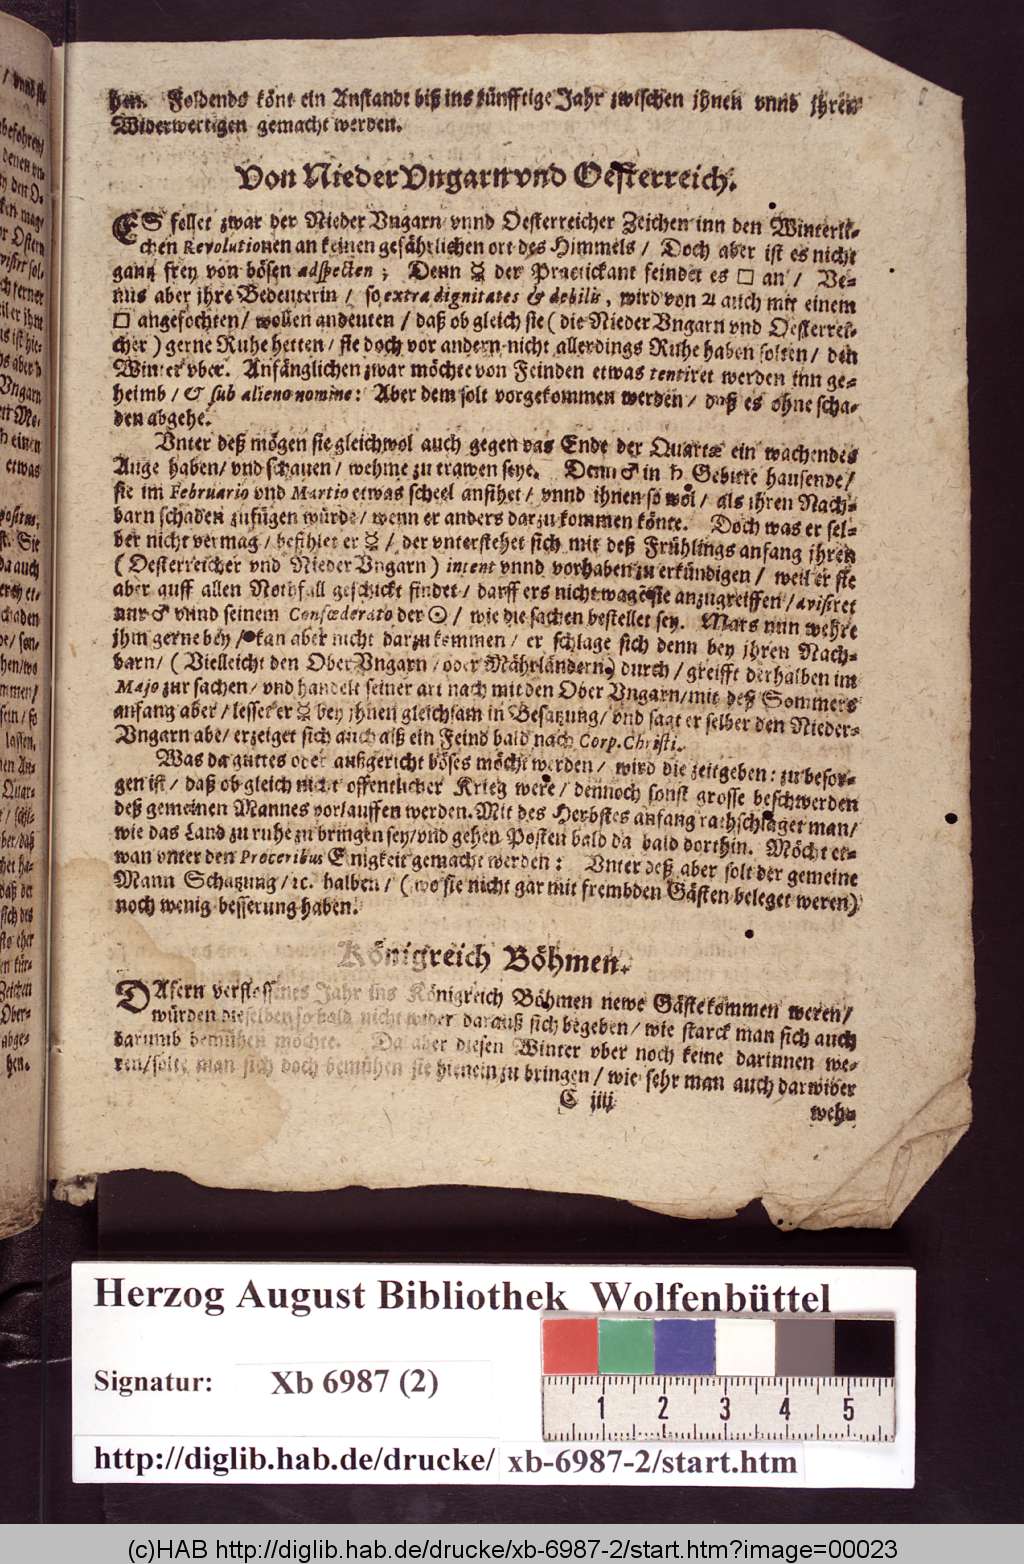 hen. Foldends könt ein Anstandt biß ins künfftige Jahr zwischen jhnen vnnd jhren
Widerwertigen gemacht werden.
Von Nieder Vngarn vnd Oesterreich.
ES fellet zwar der Nieder Vngarn vnnd Oesterreicher Zeichen inn den Winterli-
chen Revolutionen an keinen gefährlichen ort des Himmels / Doch aber ist es nicht
gantz frey von bösen adspecten ; Denn ☿ der Practickant feindet es □ an / Ve-
nus aber jhre Bedeuterin / so extra dignitates & debilis, wird von ♃ auch mit einem
□ angefochten / wollen andeuten / daß ob gleich sie ( die Nieder Vngarn vnd Oesterrei-
cher ) gerne Ruhe hetten / sie doch vor andern nicht allerdings Ruhe haben solten / den
Winter vber. Anfänglichen zwar möchte von Feinden etwas tentiret werden inn ge-
heimb / & sub alieno nomine: Aber dem solt vorgekommen werden / daß es ohne scha-
den abgehe.
Vnter deß mögen sie gleichwol auch gegen das Ende der Quartæ ein wachendes
Auge haben / vnd schauen / wehme zu trawen seye. Denn ♂ in ♄ Gebiete hausende /
sie im Februario vnd Martio etwas scheel ansihet / vnnd ihnen so wol / als ihren Nach-
barn schaden zufügen würde / wenn er anders darzu kommen könte. Doch was er sel-
ber nicht vermag / befihlet er ☿ / der vnterstehet sich mit deß Frühlings anfang jhren
( Oesterreicher vnd Nieder Vngarn ) intent vnnd vorhaben zu erkündigen / weil er sie
aber auff allen Nothfall geschickt findet / darff ers nicht wagē sie anzugreiffen / avisiret
nur ♂ vnnd seinem Confœderato der ☉ / wie die sachen bestellet sey. Mars nun wehre
jhm gerne bey / kan aber nicht darzu kommen / er schlage sich denn bey jhren Nach-
barn / ( Vielleicht den Ober Vngarn / oder Mährländern ) durch / greifft derhalben im
Majo zur sachen / vnd handelt seiner art nach mit den Ober Vngarn / mit deß Sommers
anfang aber / lesset er ☿ bey jhnen gleichsam in Besatzung / vnd sagt er selber den Nieder-
Vngarn abe / erzeiget sich auch alß ein Feind bald nach Corp. Christi.
Was da guttes oder außgericht böses möcht werden / wird die zeit geben: zu besor-
gen ist / daß ob gleich nicht offentlicher Krieg were / dennoch sonst grosse beschwerden
deß gemeinen Mannes vorlauffen werden. Mit des Herbstes anfang rathschlaget man /
wie das Land zu ruhe zu bringen sey / vnd gehen Posten bald da bald dorthin. Möcht et-
wan vnter den Proceribus Einigkeit gemacht werden : Vnter deß aber solt der gemeine
Mann Schatzung / ꝛc. halben / ( wo sie nicht gar mit frembden Gästen beleget weren )
noch wenig besserung haben.
Königreich Böhmen.
DAfern verflossenes Jahr ins Königreich Böhmen newe Gäste kommen weren /
würden dieselben so bald nicht wider darauß sich begeben / wie starck man sich auch
darumb bemühen möchte. Da aber diesen Winter vber noch keine darinnen we-
ren / solte man sich doch bemühen sie hienein zu bringen / wie sehr man auch darwider
C iiij
weh-
Herzog August Bibliothek Wolfenbüttel
Signatur: Xb 6987 (2)
1 2 3 4 5
http://diglib.hab.de/drucke/ xb-6987-2/start.htm
(c)HAB http://diglib.hab.de/drucke/xb-6987-2/start.htm?image=00023